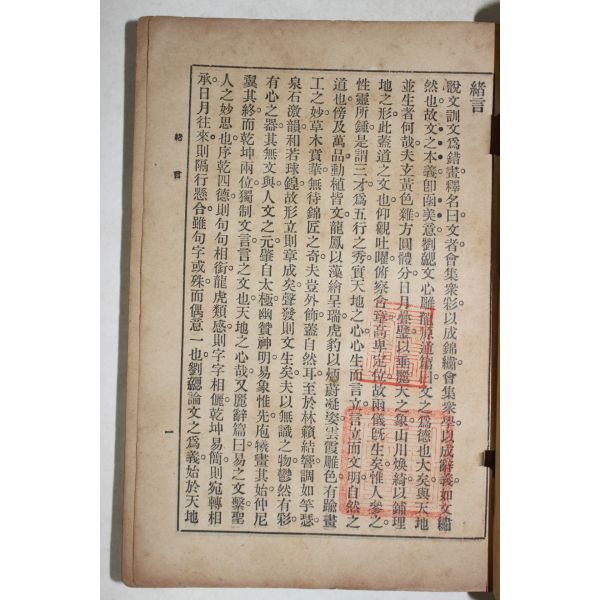 緒言
說文訓文爲錯畫釋名曰文者會集衆彩以成錦繡會集衆學以成辭義如文繡
然也故文之本義卽函美意劉勰文心雕龍原道篇曰文之爲德也大矣與天地
並生者何哉夫玄黃色雜方圓體分日月疊璧以垂麗天之象山川煥綺以鋪理
地之形此蓋道之文也仰觀吐曜俯察含章高卑定位故兩儀旣生矣惟人參之
性靈所鍾是謂三才爲五行之秀實天地之心心生而言立言立而文明自然之
道也傍及萬品動植皆文龍鳳以藻繪呈瑞虎豹以炳蔚凝姿雲霞雕色有踰畫
工之妙草木賁華無待錦匠之奇夫豈外飾蓋自然耳至於林籟結響調如竽瑟
泉石激韻和若球鍠故形立則章成矣聲發則文生矣夫以無識之物鬱然有彩
有心之器其無文與人文之元肇自太極幽贊神明易象惟先庖犧畫其始仲尼
翼其終而乾坤兩位獨制文言言之文也天地之心哉又麗辭篇曰易之文繫聖
人之妙思也序乾四德則句句相銜龍虎類感則字字相儷乾坤易簡則宛轉相
承日月往來則隔行懸合雖句字或殊而偶意一也劉勰論文之爲義始於天地
緒言
一